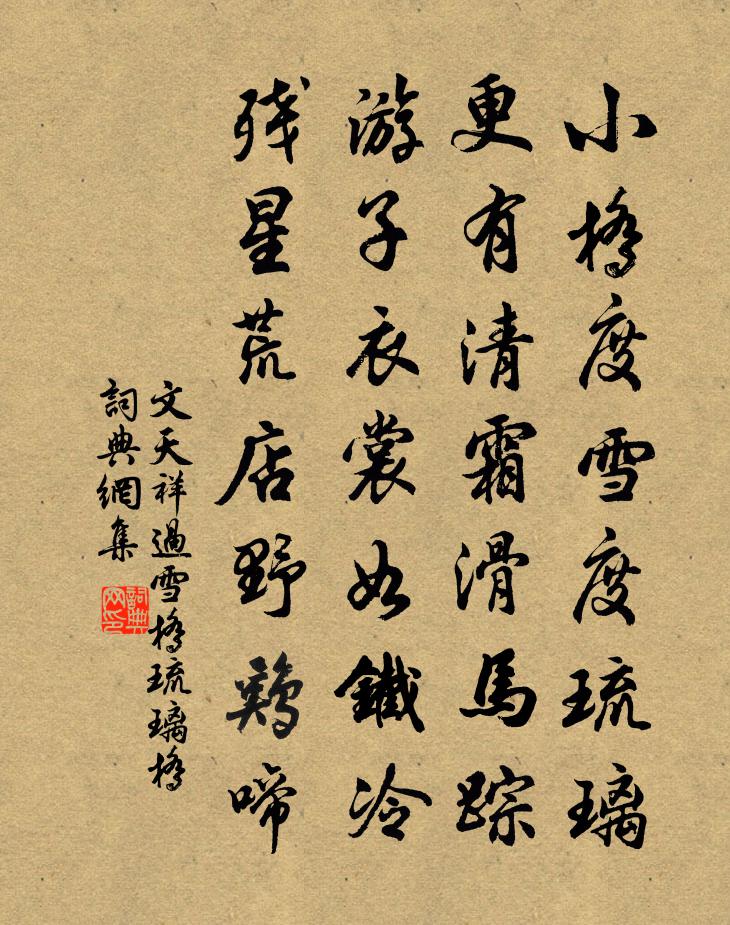 小橋度雪度琉璃
更有清霜滑馬踪
游子衣裳如鐵冷
残星荒店野鷄啼
文天祥過雪橋琉璃橋
詞典網集
詞典网印